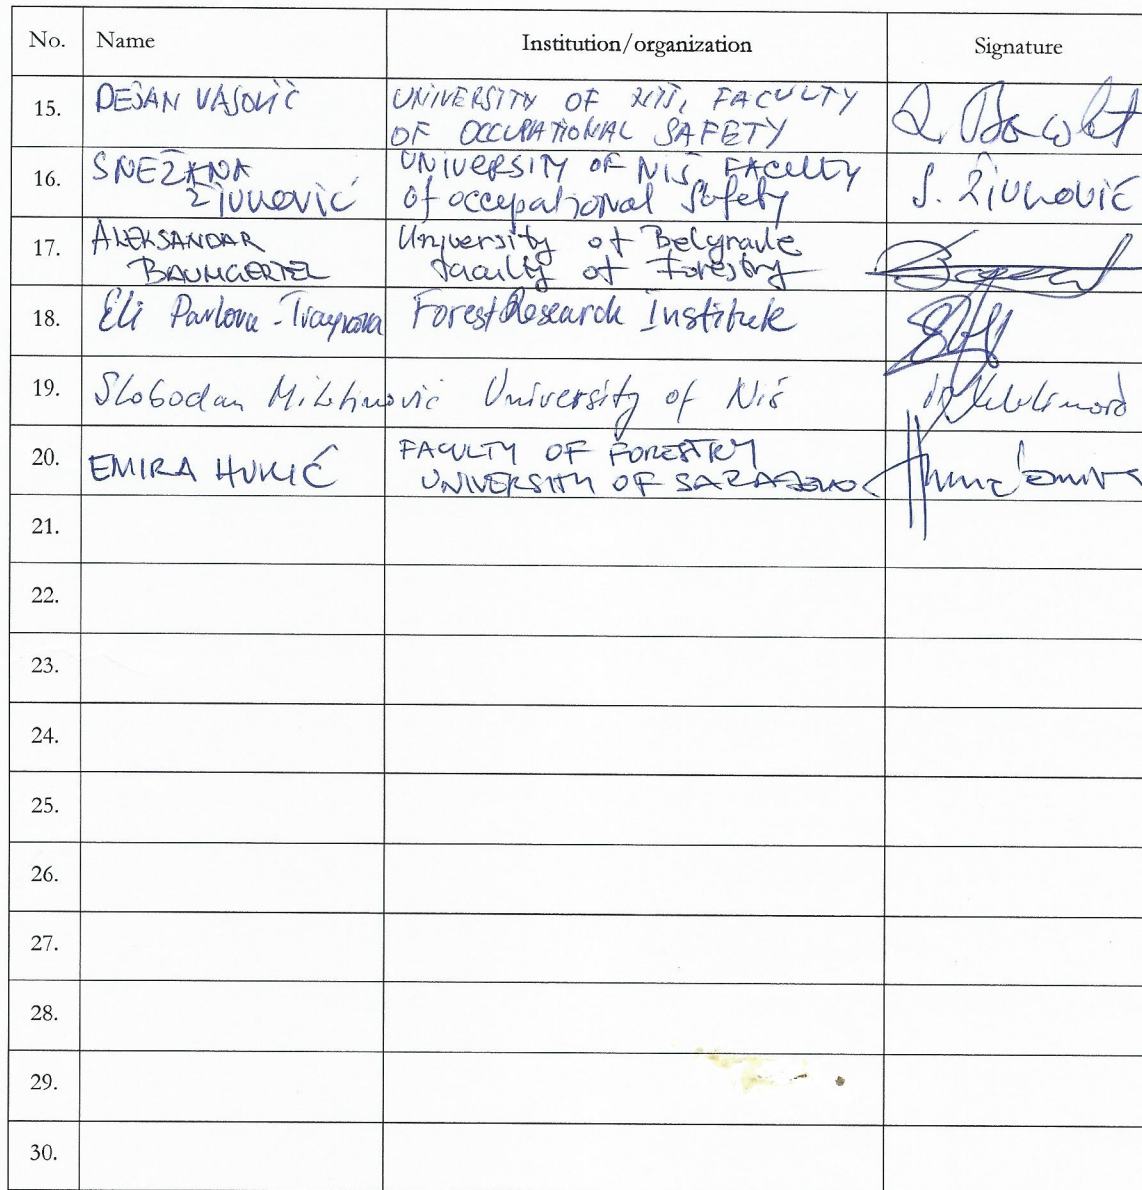 No. Name Institution/organization Signature
15. DEJAN VASOVIĆ UNIVERSITY OF NIŠ, FACULTY
OF OCCUPATIONAL SAFETY
16. SNEŽANA UNIVERSITY OF NIŠ, FACULTY
ŽIVKOVIĆ of occupational Safety S. ŽIVKOVIĆ
17. ALEKSANDAR University of Belgrade
BAUMGERTEL faculty of Forestry
18. Eli Pavlova- Forest Research Institute
19. Slobodan Milutinović University of Niš
20. EMIRA HUKIĆ FACULTY OF FORESTRY
UNIVERSITY OF SARAJEVO
21.
22.
23.
24.
25.
26.
27.
28.
29.
30.